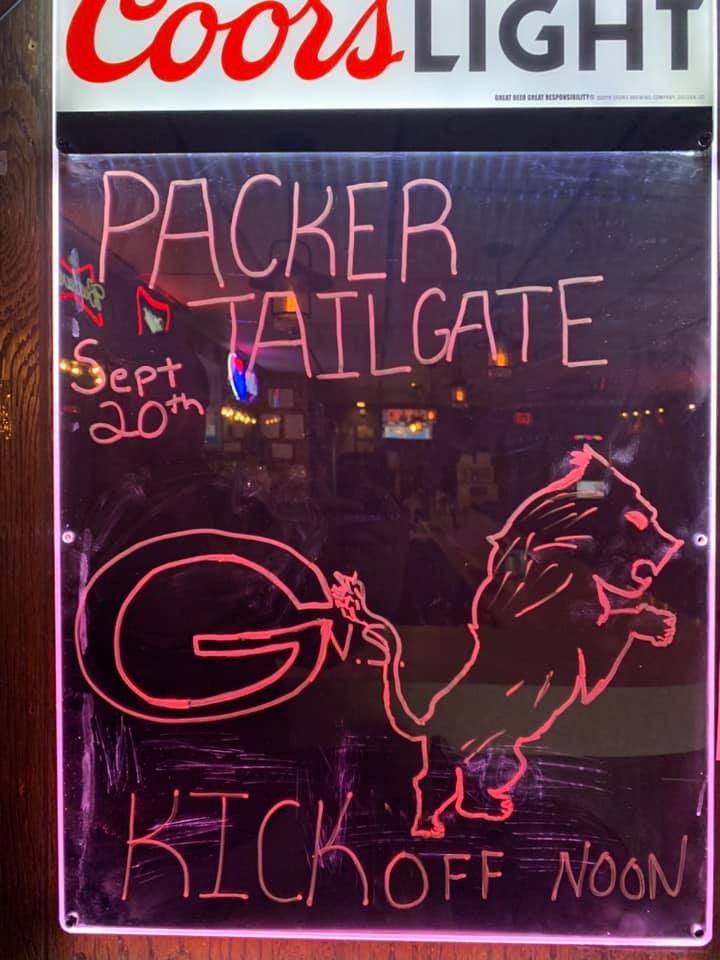 Coors LIGHT
GREAT BEER GREAT RESPONSIBILITY®
PACKER
TAILGATE
Sept
20th
G
V.S.
KICKOFF NOON